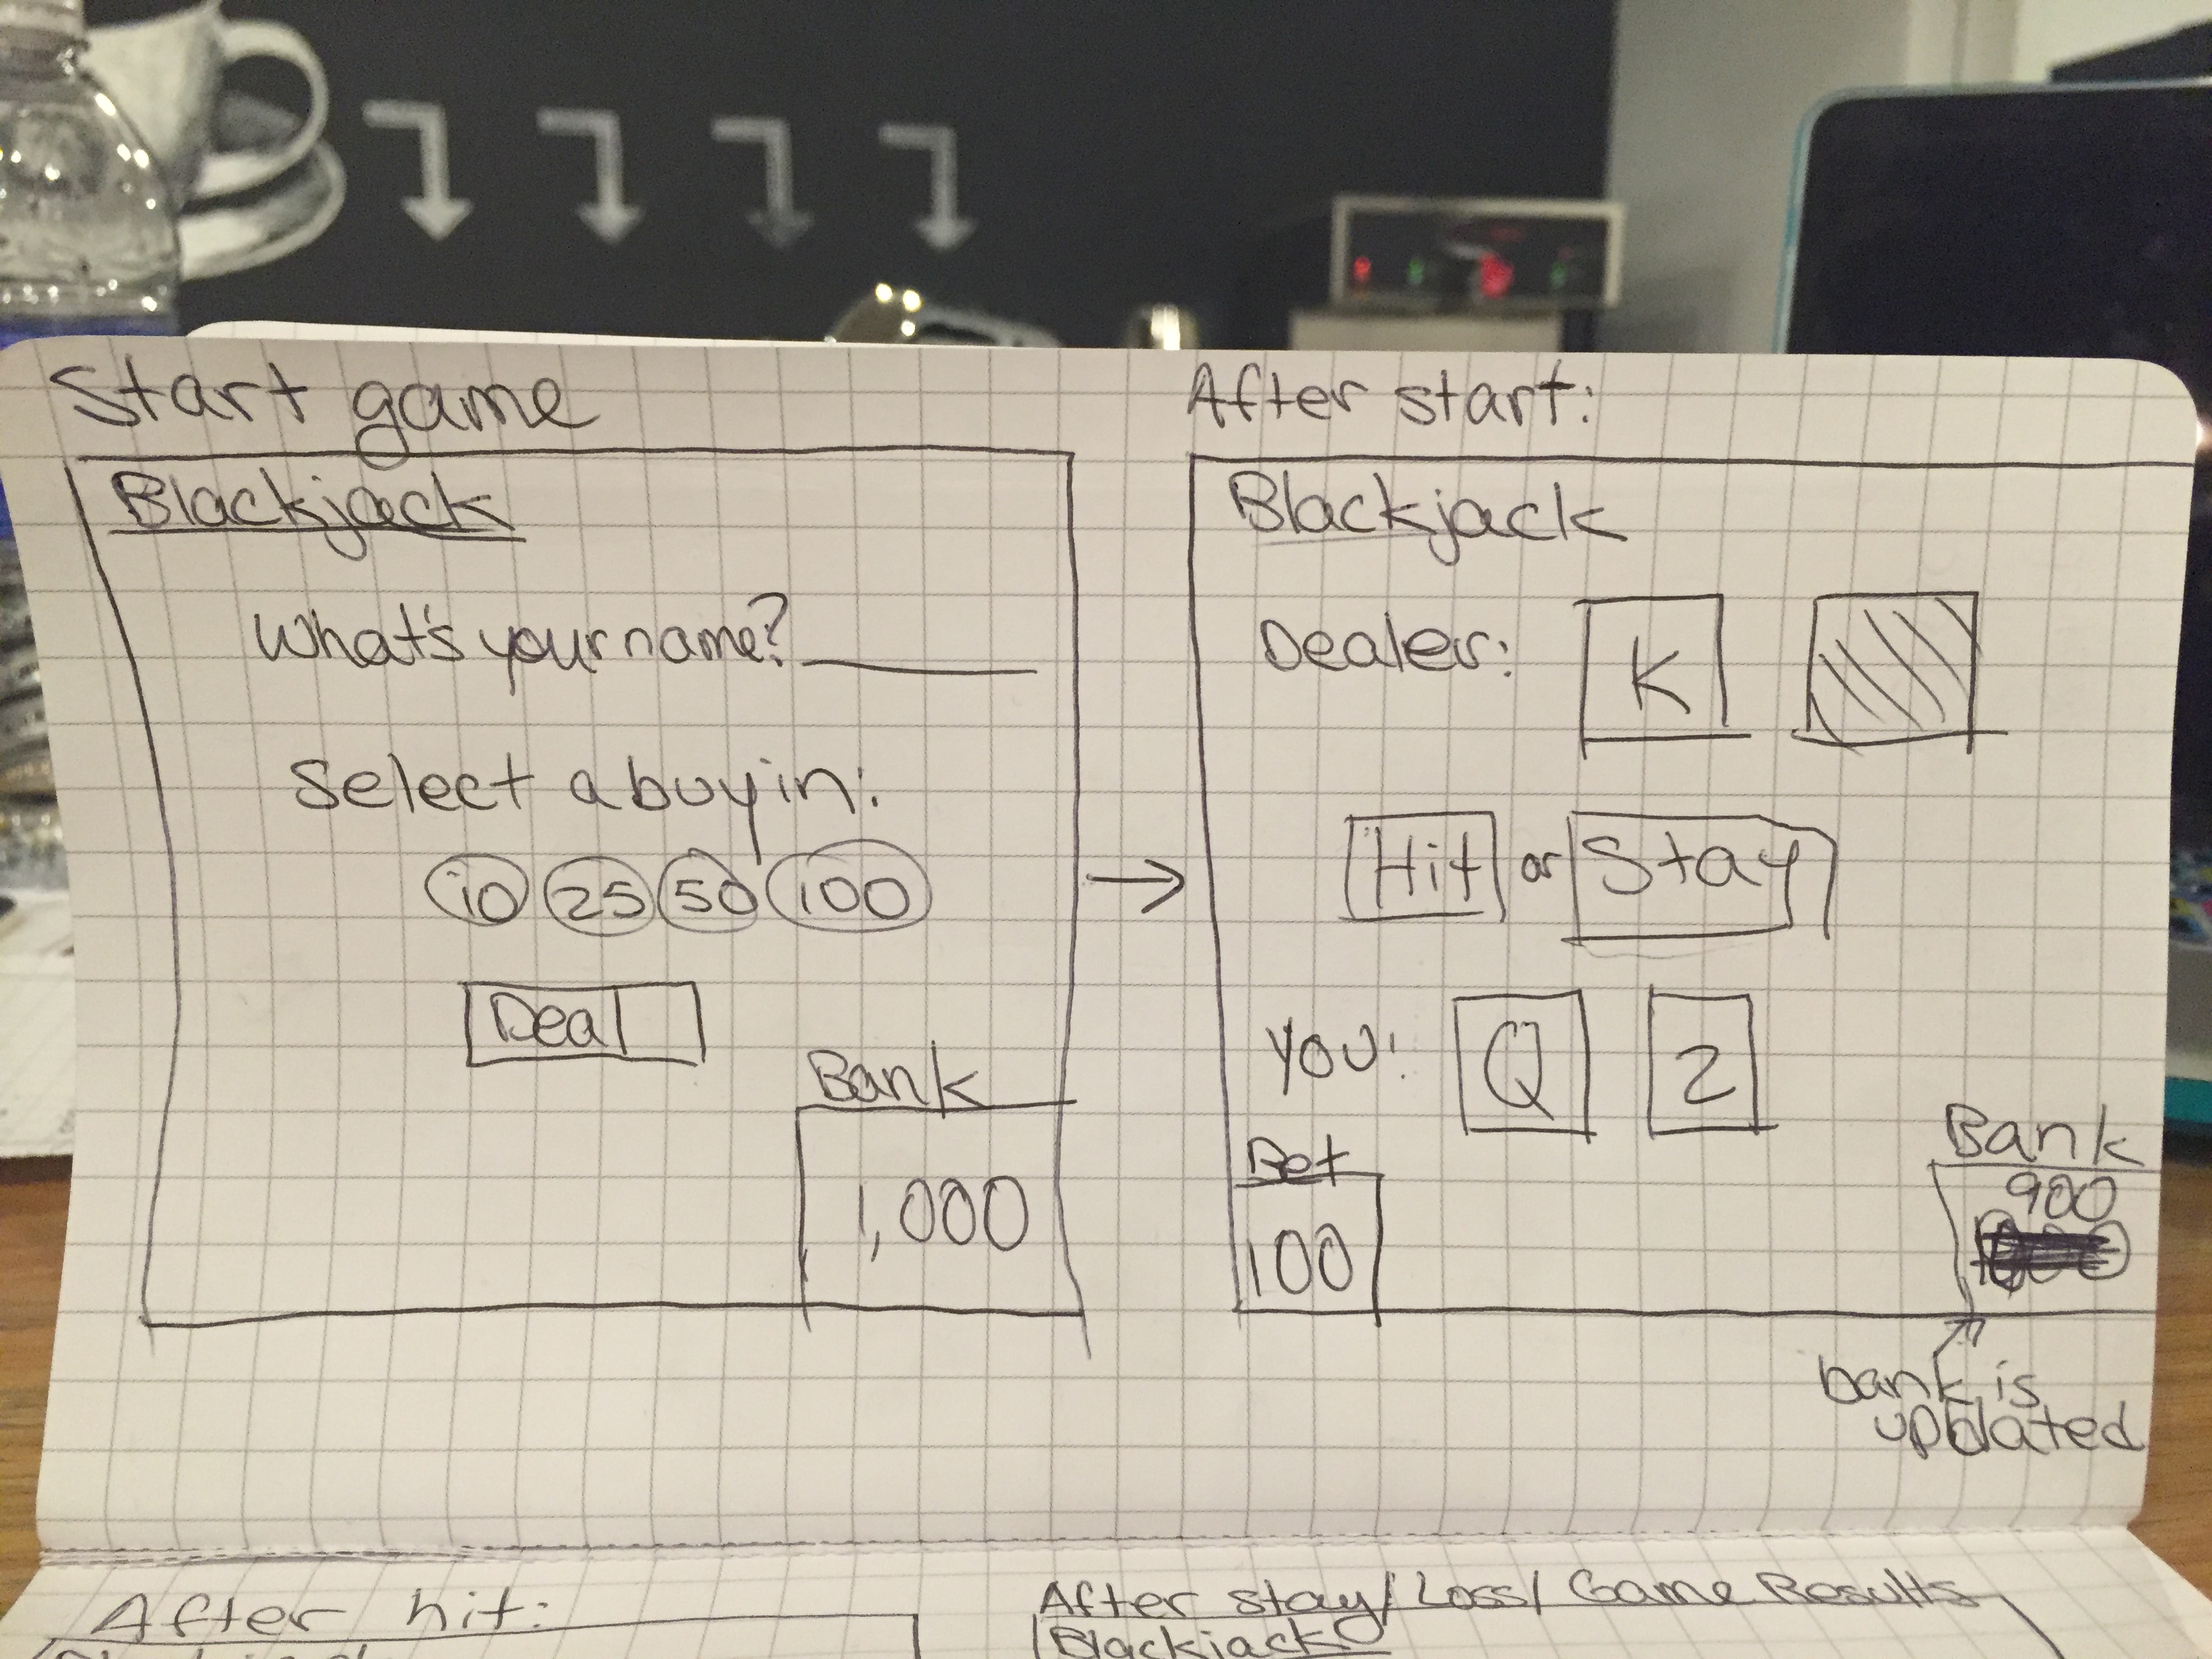 Start game
Blackjack
What's your name?
Select a buy in:
10 25 50 100
Deal
Bank
1,000
After start:
Blackjack
Dealer: K
Hit or Stay
You: Q 2
Bet
100
Bank
900
bank is
updated
After hit:
After stay/Loss/Game Results
Blackjack